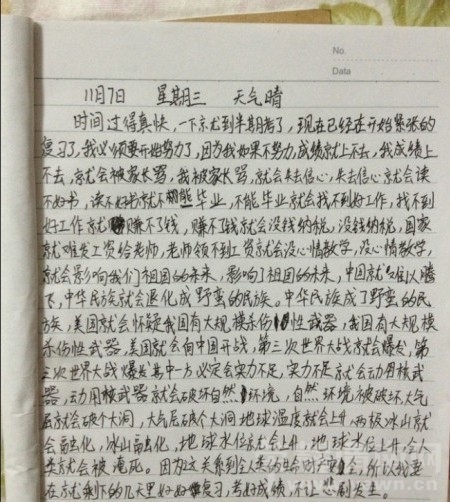 No.
Data
11月7日 星期三 天气晴
时间过得真快,一下就到半期考了,现在已经在开始紧张的
复习了,我必须要开始努力了,因为我如果不努力,成绩就上不去,我成绩上
不去,就会被家长骂,我被家长骂,就会失去信心,失去信心就会读
不好书,读不好书就不能毕业,不能毕业就会找不到好工作,找不到
好工作就赚不了钱,赚不了钱就会没钱纳税,没钱纳税,国家
就难发工资给老师,老师领不到工资就会没心情教学,没心情教学,
就会影响我们祖国的未来,影响了祖国的未来,中国就难以腾
飞,中华民族就会退化成野蛮的民族。中华民族成了野蛮的民
族,美国就会怀疑我国有大规模杀伤性武器,我国有大规模
杀伤性武器,美国就会向中国开战,第三次世界大战就会爆发,第
三次世界大战爆发其中一方必定会实力不足,实力不足就会动用核武
器,动用核武器就会破坏自然环境,自然环境被破坏大气
层就会破个大洞,大气层破个大洞地球温度就会上升,两极冰山就
会融化,冰山融化,地球水位就会上升,地球水位上升,全人
类就会被淹死。因为这关系到全人类的生命财产安全,所以我要
在就剩下的几天里好好复习,考好成绩,不让悲剧发生。